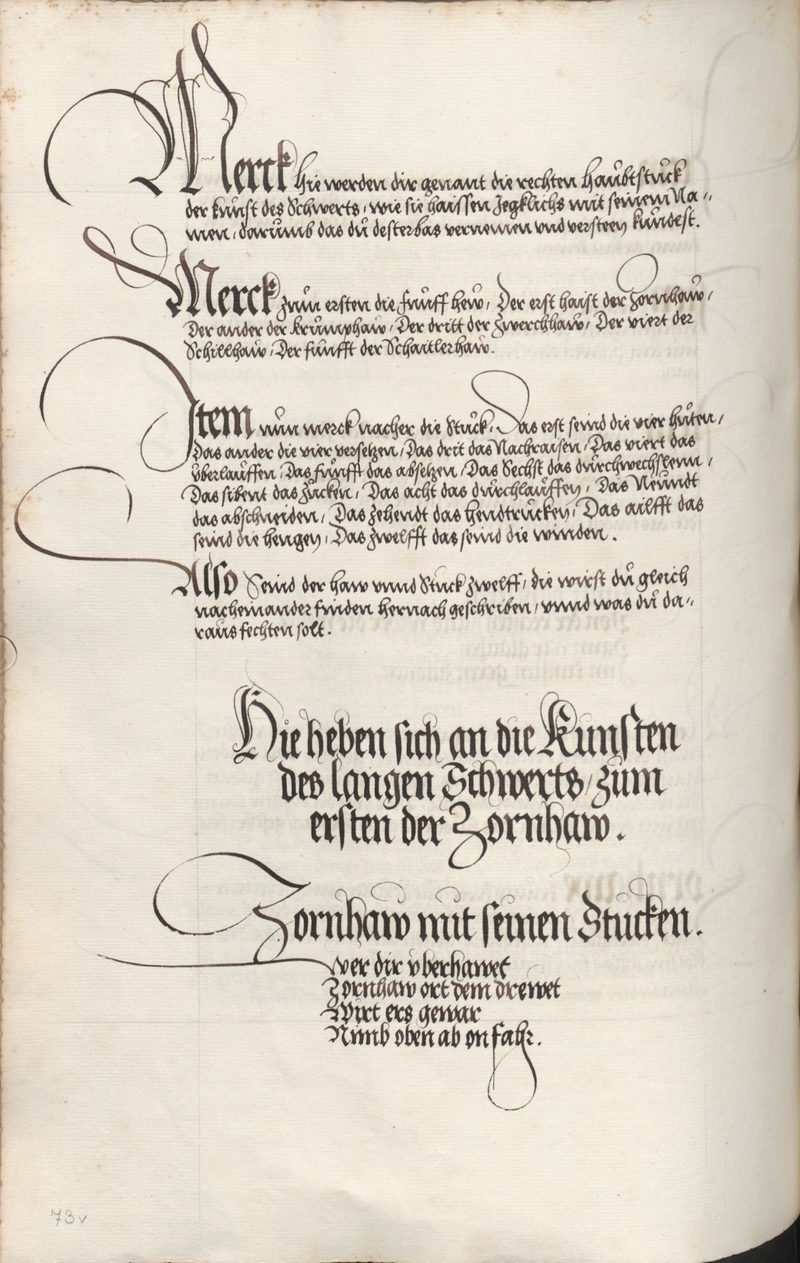 Merck hie werden dir genant die rechten haubtstuck
der kunst des Schwerts, wie sie haissen Jegklichs mit seinem Na-
men, darumb das du desterbas vernemen vnd versteen kundest.
Merck zum ersten die funff hew, Der erst haist der Zornhaw,
Der ander der krumphaw, Der dritt der Zwerchhaw, Der viert der
Schillhaw, Der funfft der Schaitlerhaw.
Item nun merck nacher die Stuck, Das erst seind die vier huten,
Das ander die vier versetzen, Das drit das Nachraisen, Das viert das
vberlauffen, Das funfft das absetzen, Das Sechst das durchwechslenn,
Das sibent das Zucken, Das acht das durchlauffen, Das Neundt
das abschneiden, Das Zehendt das hendtrucken, Das ailfft das
seind die hengen, Das Zwelfft das seind die winden.
Also Seind der haw vnnd Stuck Zwelff, die wirst du gleich
nacheinander finden hernach geschriben, vnnd was du da-
raus fechten solt.
Hie heben sich an die Kunsten
des langen Schwerts, zum
ersten der Zornhaw.
Zornhaw mit seinen Stucken.
wer dir vberhawet
Zornhaw ort dem drewet
Wirt ers gewar
Nimb oben ab on fahr.
73v